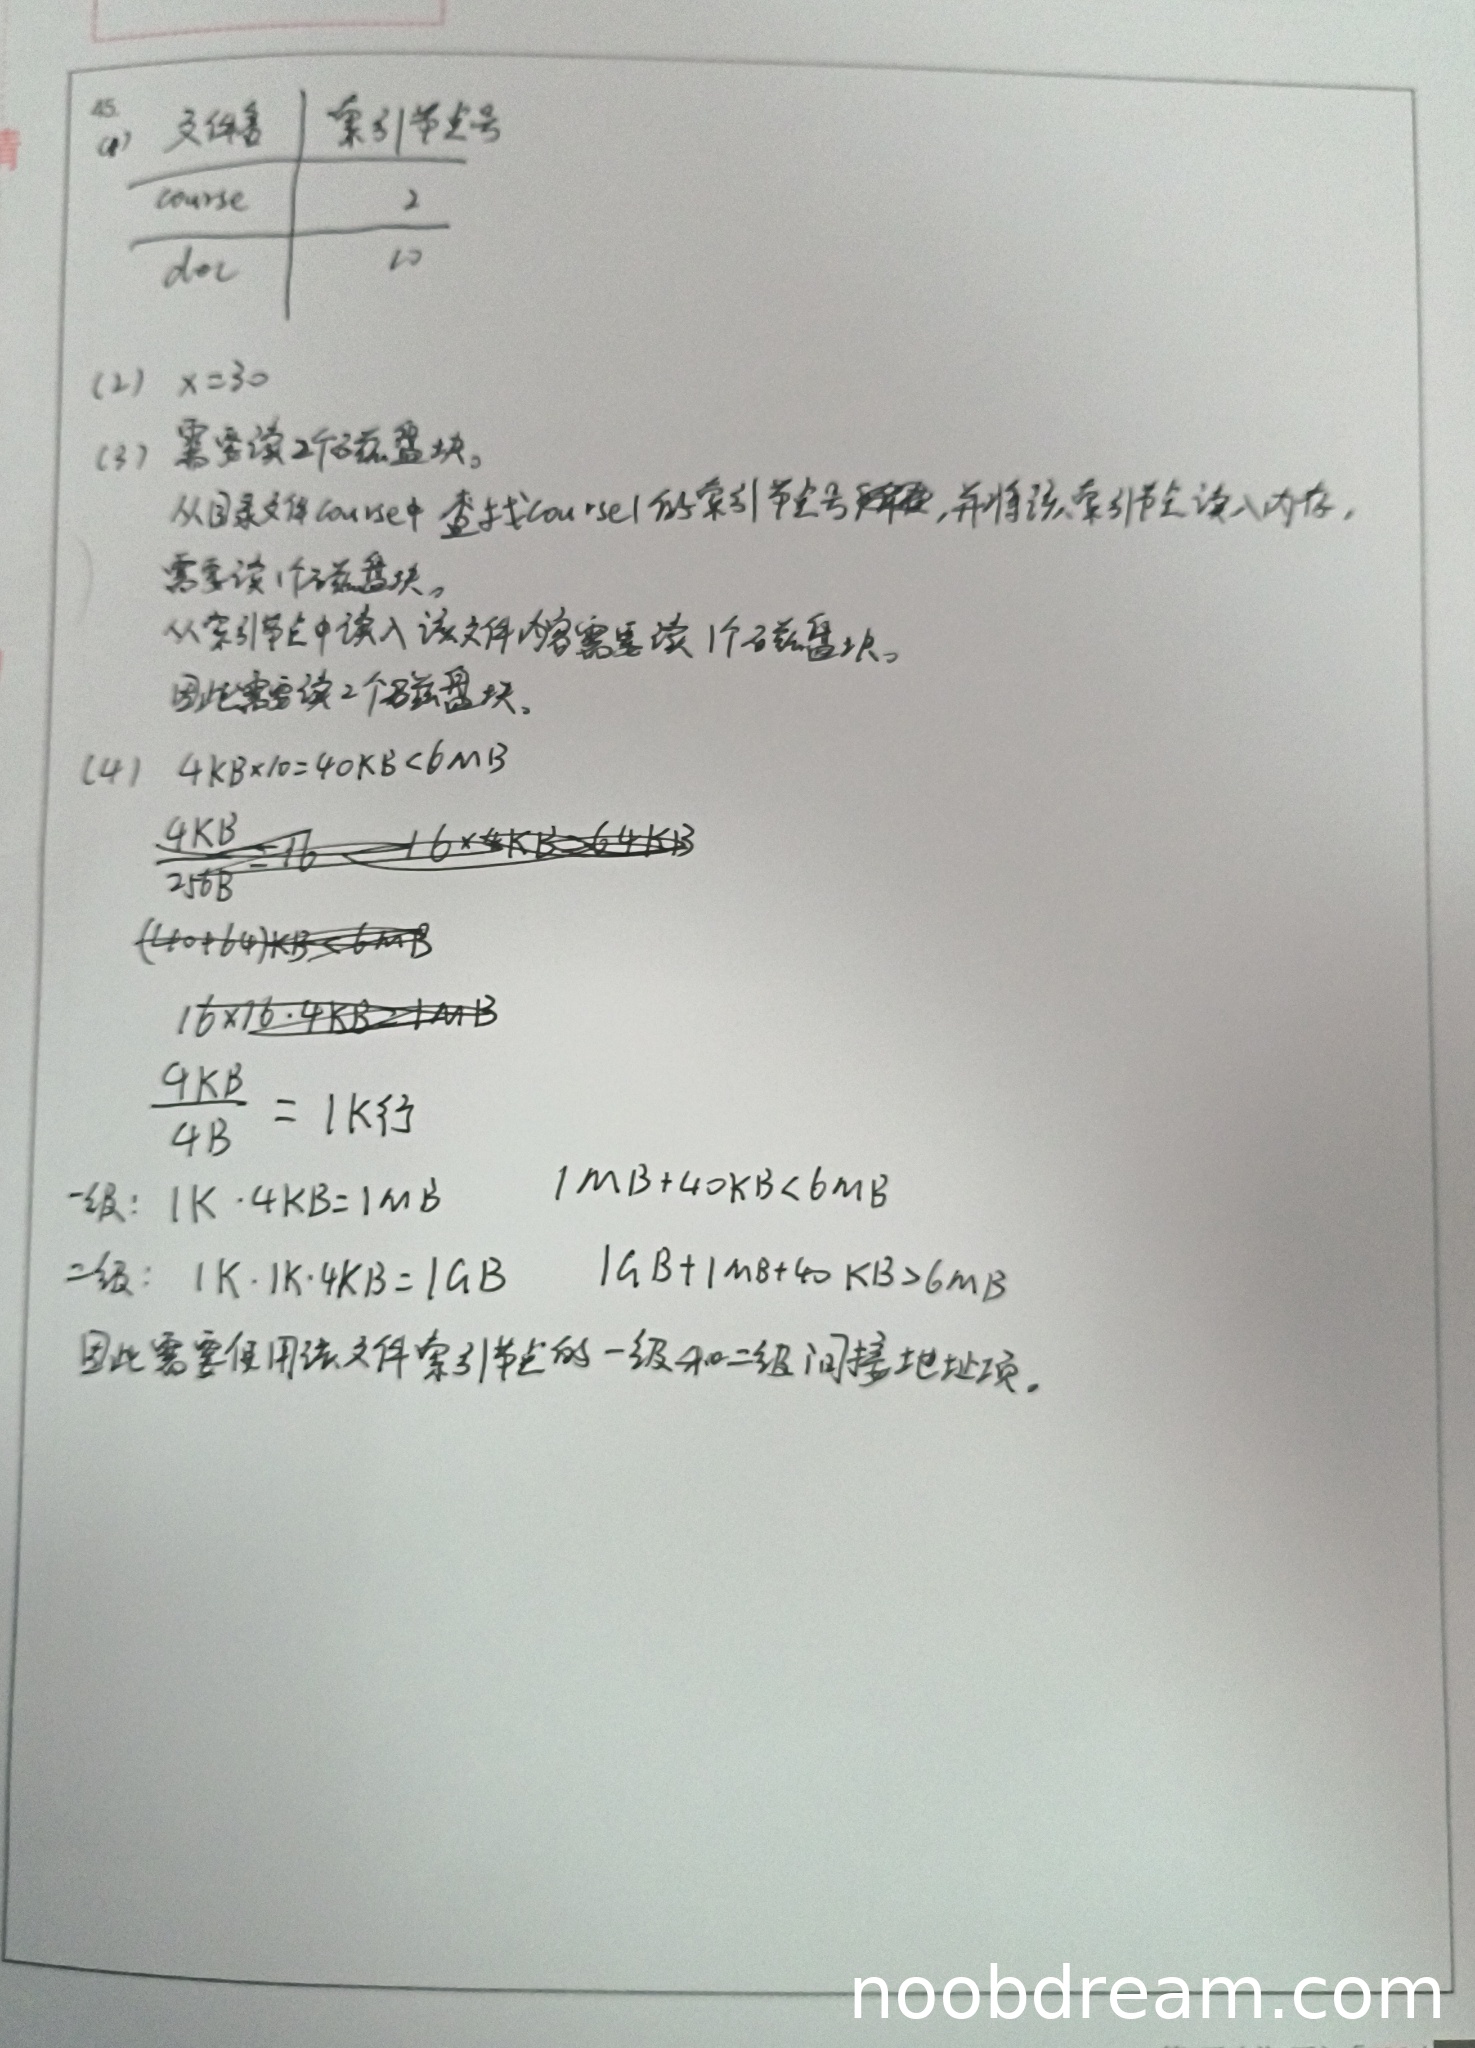 45.
(1) 文件名 索引节点号
course 2
doc 10
(2) x=30
(3) 需要读2个磁盘块。
从目录文件course中查找course1的索引节点号,并将该索引节点读入内存,
需要读1个磁盘块。
从索引节点中读入该文件内容需要读1个磁盘块。
因此需要读2个磁盘块。
(4) 4KB×10=40KB<6MB
4KB/256B=16 16×4KB=64KB
(40+64)KB<6MB
16×16·4KB=1MB
4KB/4B = 1K行
一级: 1K·4KB=1MB 1MB+40KB<6MB
二级: 1K·1K·4KB=1GB 1GB+1MB+40KB>6MB
因此需要使用该文件索引节点的一级和二级间接地址项。
noobdream.com